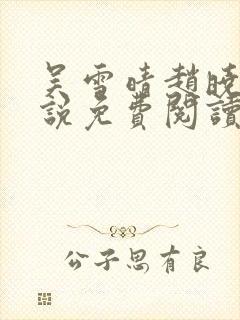 吴雪晴趙曉
說免費閱讀
公子思有良